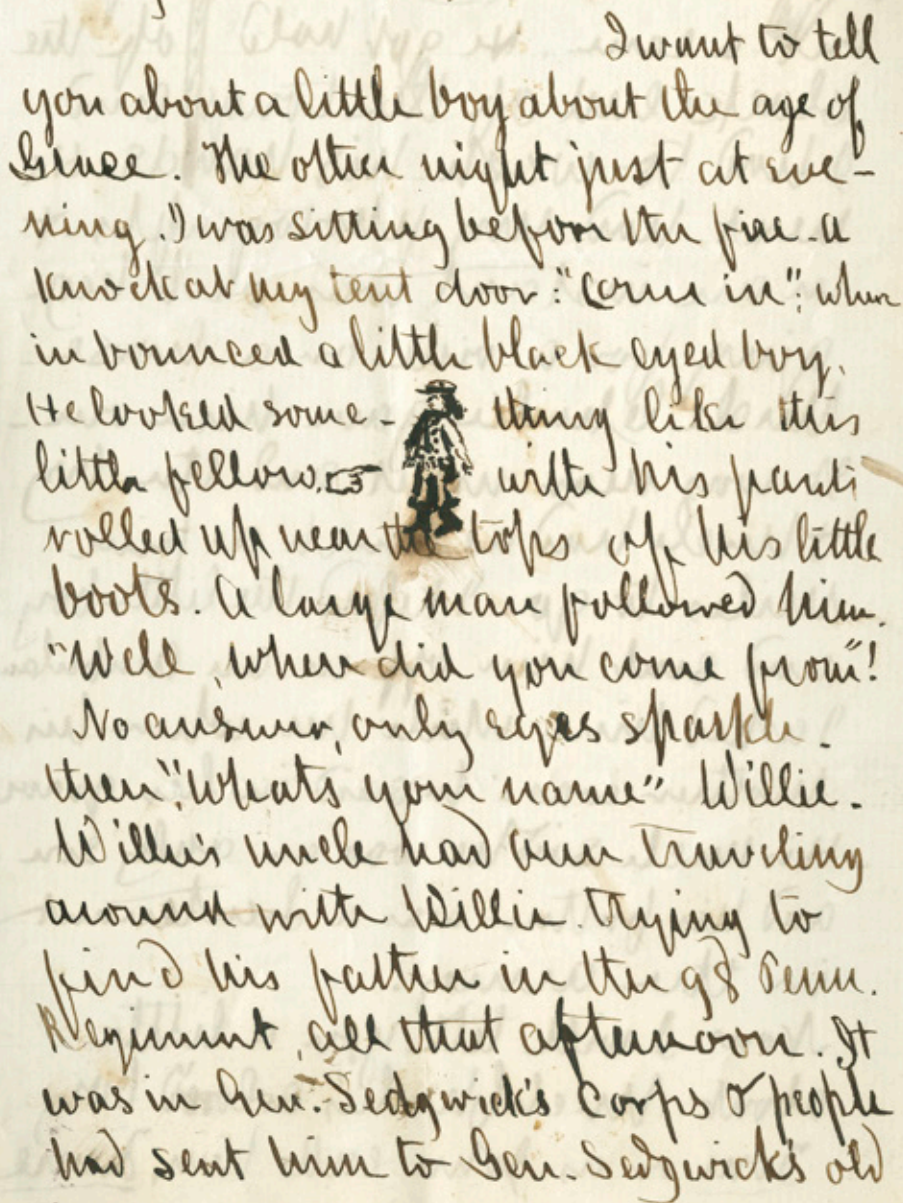 I want to tell
you about a little boy about the age of
Grace. The other night just at eve-
ning. I was sitting before the fire - a
knock at my tent door: "Come in"; when
in bounced a little black eyed boy.
He looked some- thing like this
little fellow, ☞ with his pants
rolled up near the tops of his little
boots. A large man followed him.
"Well, where did you come from"!
No answer, only eyes sparkle.
then, "Whats your name" Willie.
Willie's uncle had been traveling
around with Willie trying to
find his father in the 98 Penn.
Regiment, all that afternoon. It
was in Gen. Sedgwick's Corps & people
had sent him to Gen. Sedgwick's old